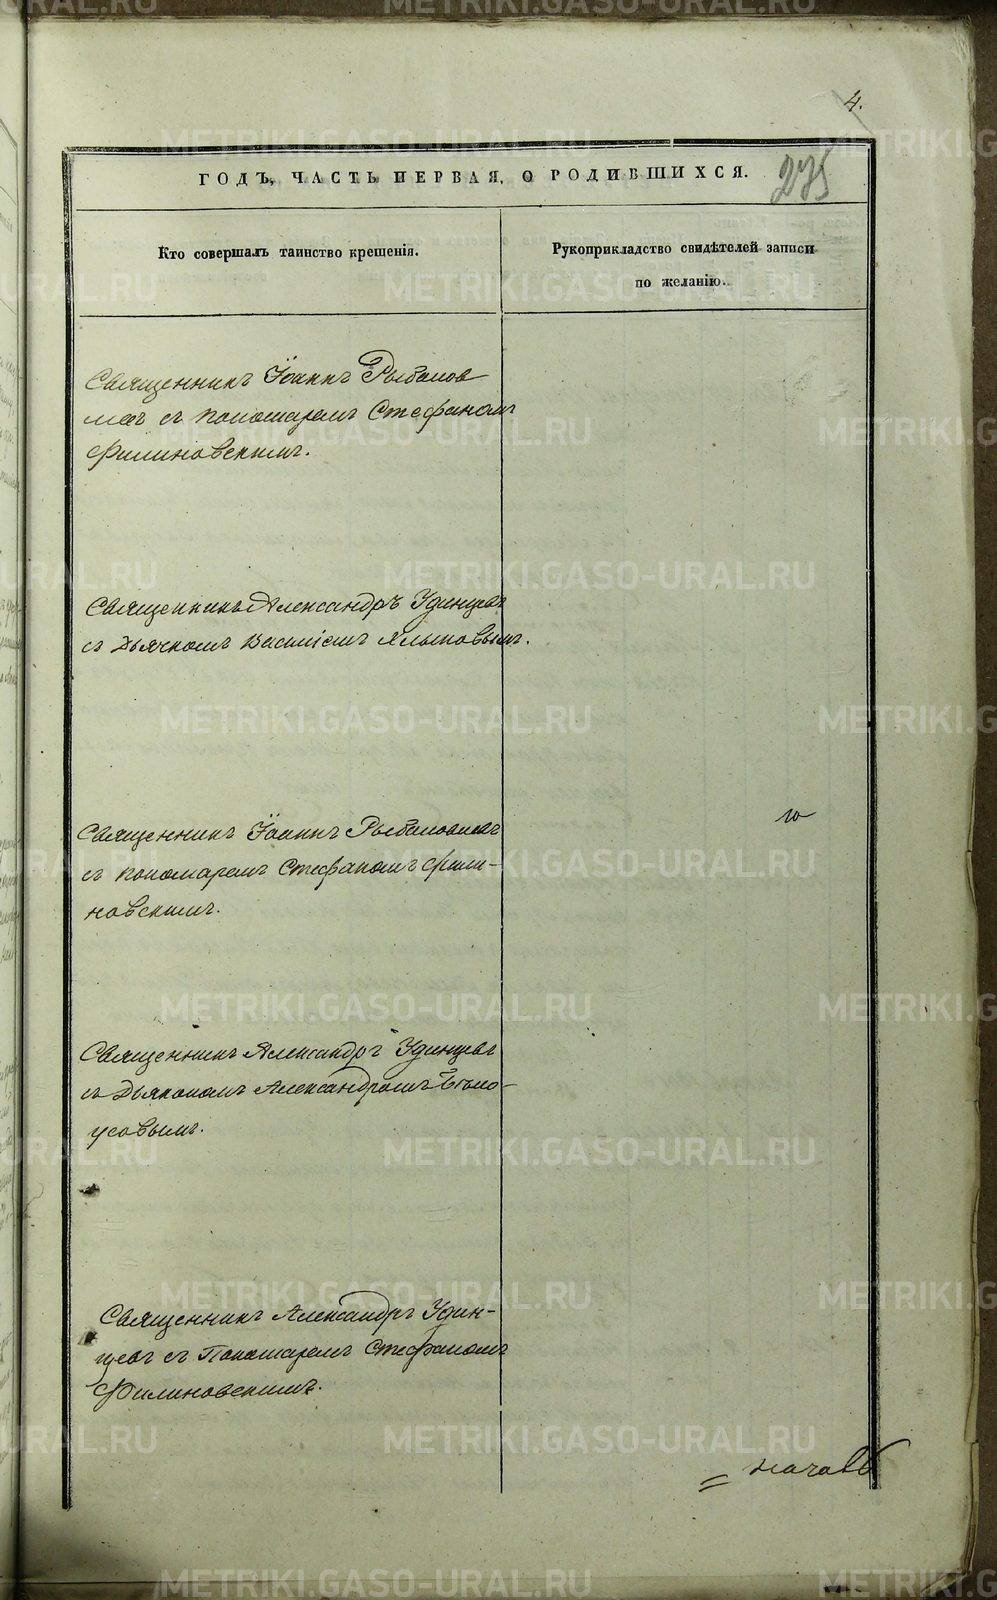 4.
275
ГОДЪ, ЧАСТЬ ПЕРВАЯ, О РОДИВШИХСЯ.
Кто совершалъ таинство крещенія.
Рукоприкладство свидѣтелей записи
по желанію.
Священникъ Іоаннъ Рыболов
левъ съ пономаремъ Стефаномъ
Филиновскимъ.
Священникъ Александръ Удинцевъ
съ Дьячкомъ Василіемъ
Священникъ Іоаннъ Рыболовлевъ
съ пономаремъ Стефаномъ Фили-
новскимъ.
Священникъ Александръ Удинцевъ
съ Дьякономъ Александромъ Бѣло-
усовымъ.
Священникъ Александръ Удин-
цевъ съ Пономаремъ Стефаномъ
Филиновскимъ.
METRIKI.GASO-URAL.RU